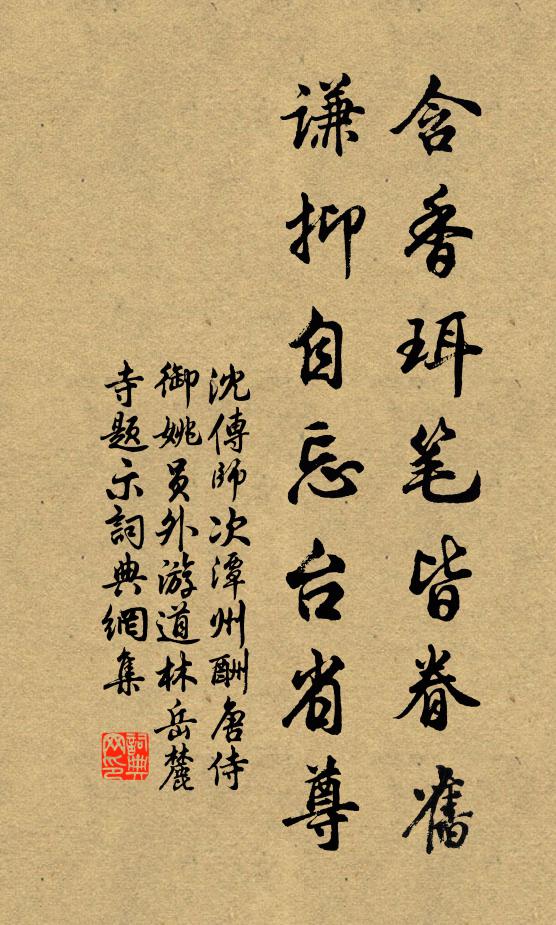 含香珥笔皆眷舊
谦抑自忘台省尊
沈傳師次潭州酬唐侍
御姚员外游道林岳麓
寺题示詞典網集
詞典
网印